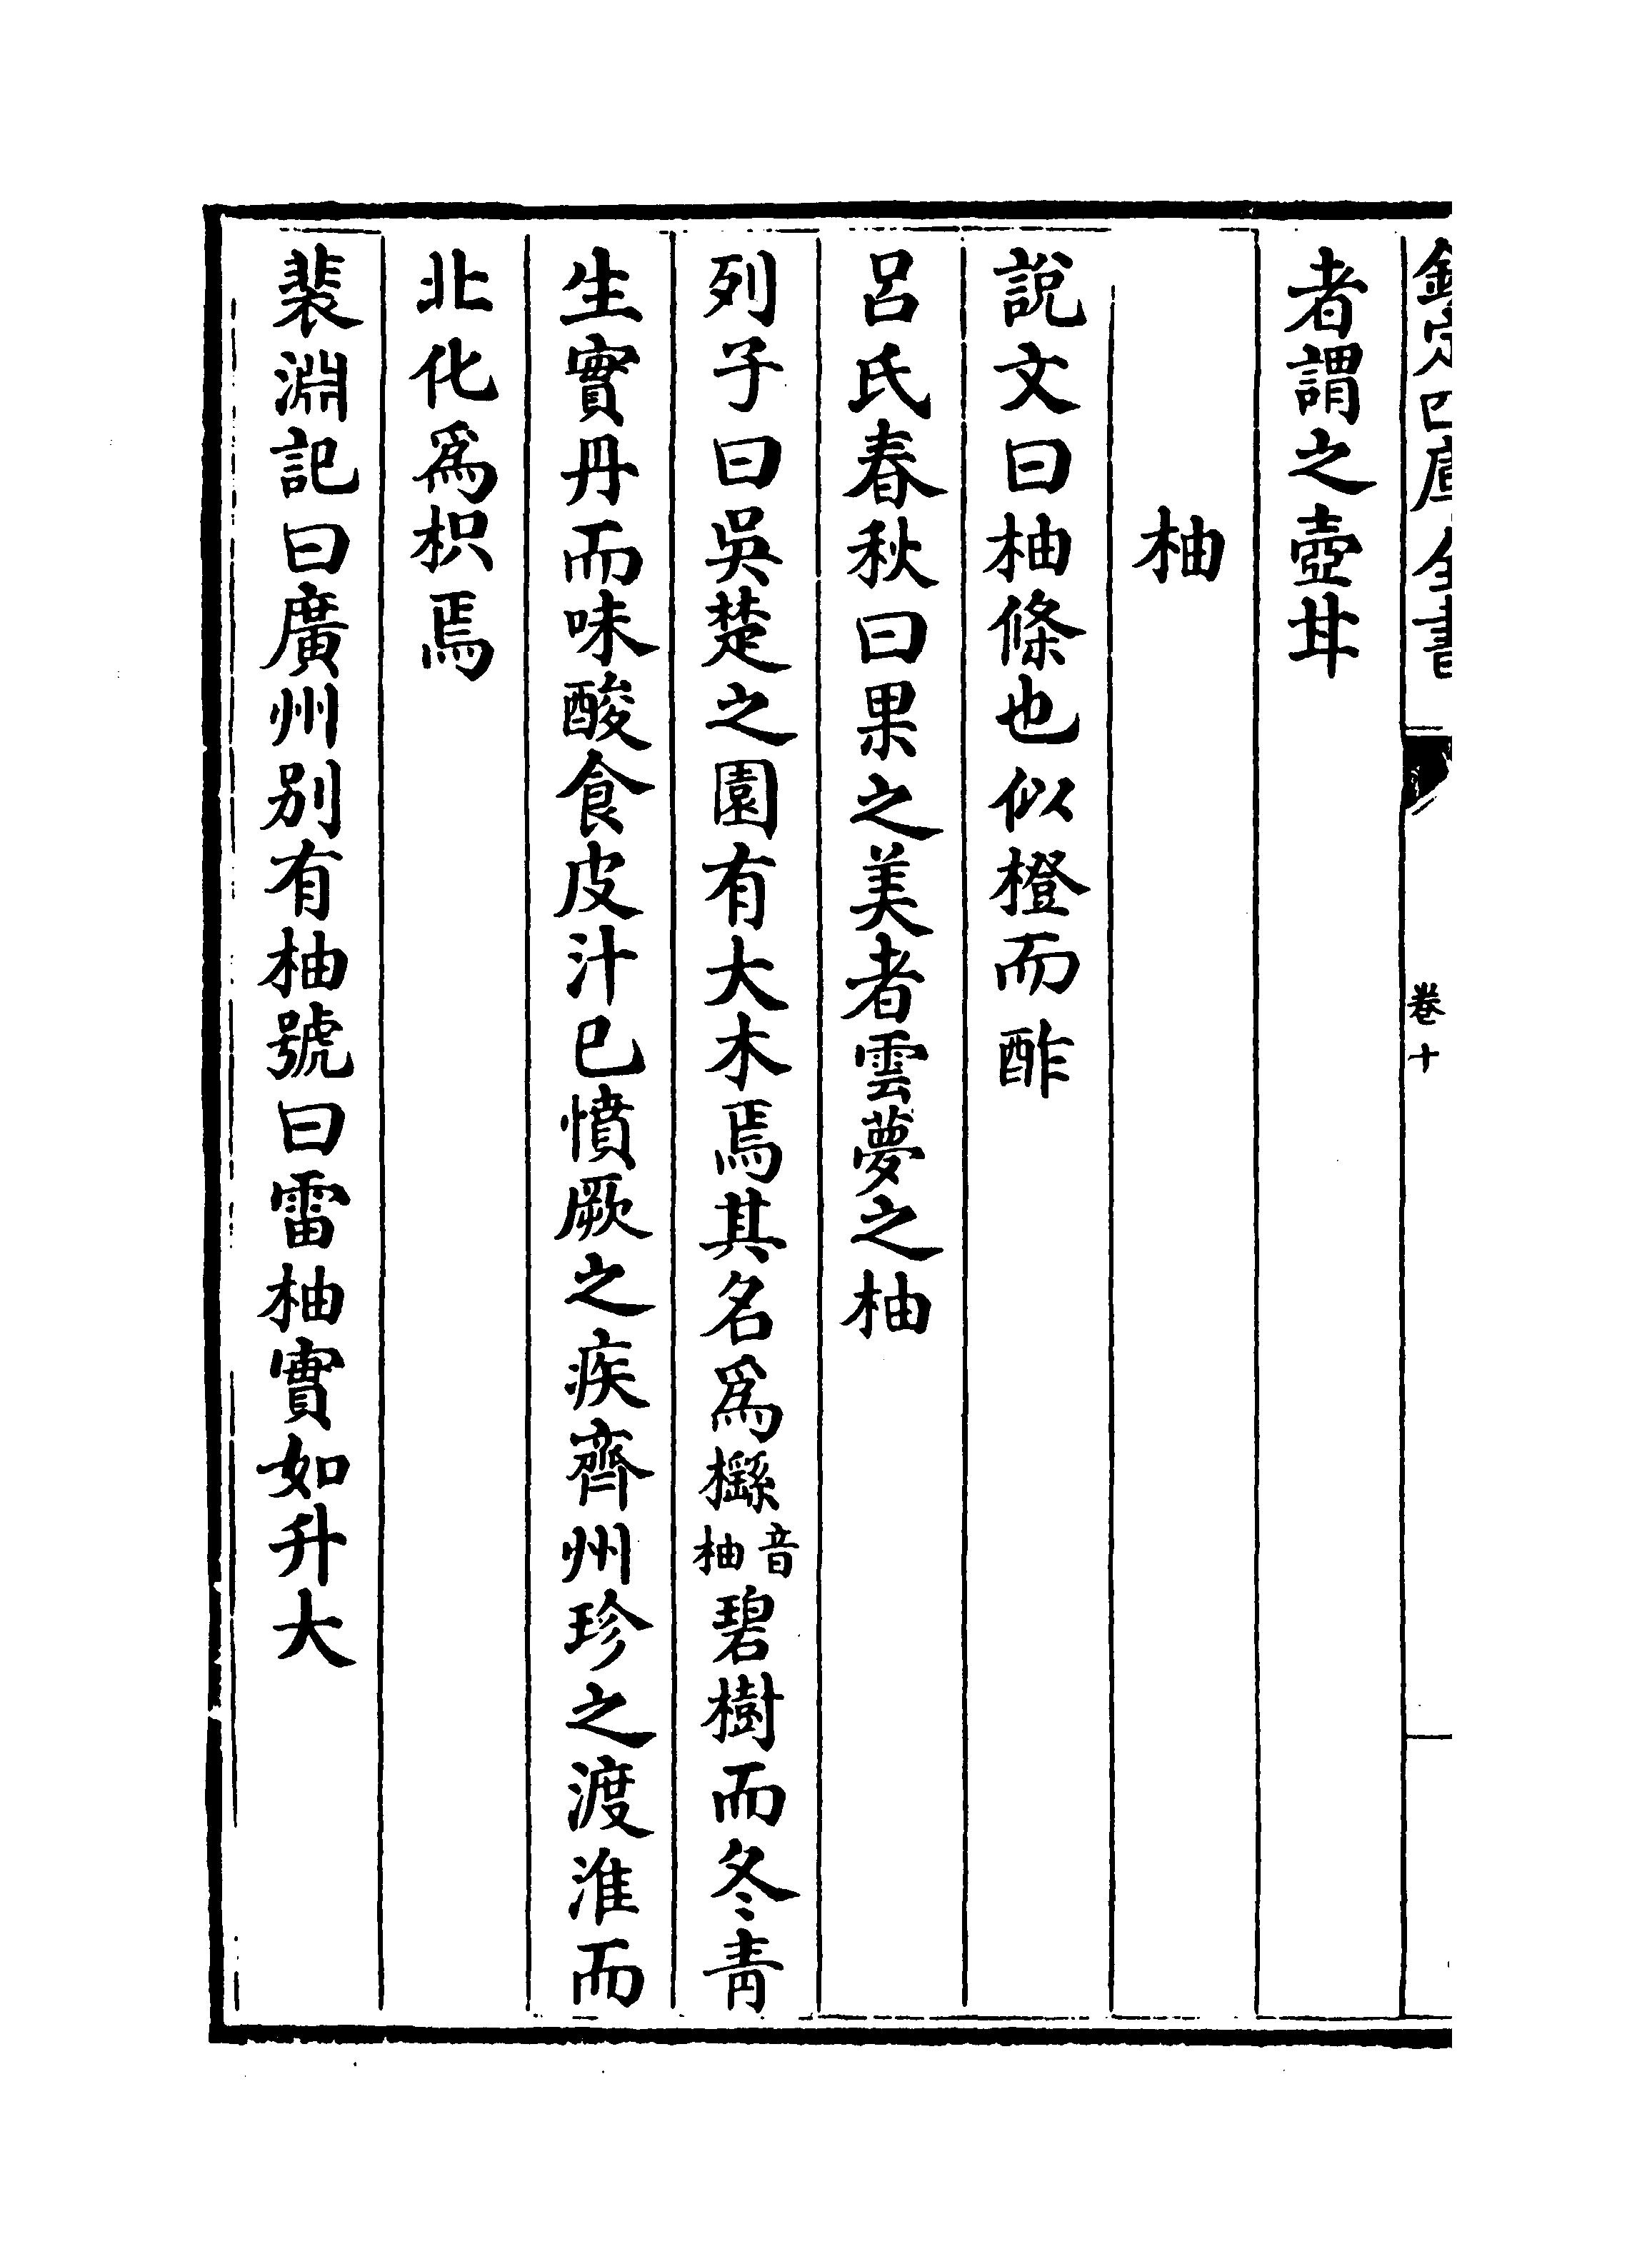 欽定四庫全書 卷十
者謂之壺甘
柚
說文曰柚條也似橙而酢
呂氏春秋曰果之美者雲夢之柚
列子曰吳楚之園有大木焉其名爲櫾音柚碧樹而冬青
生實丹而味酸食皮汁已憤厥之疾齊州珍之渡淮而
北化爲枳焉
裴淵記曰廣州別有柚號曰雷柚實如升大